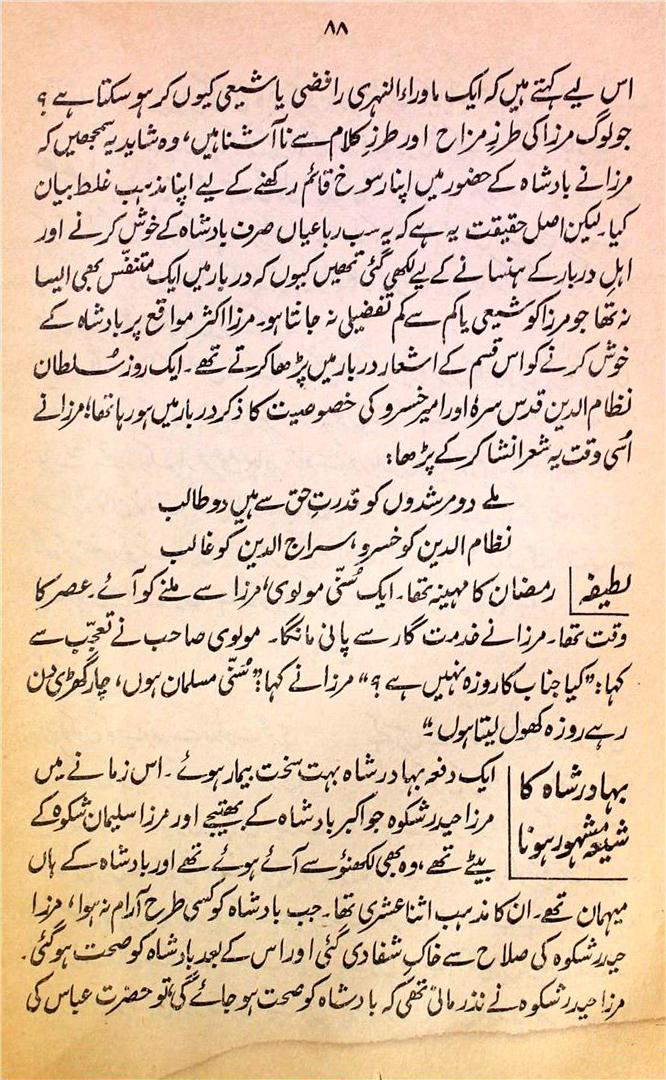 ۸۸
اس لیے کہتے ہیں کہ ایک ماوراء النہری رافضی یا شیعی کیوں کر ہو سکتا ہے ؟
جو لوگ مرزا کی طرزِ مزاح اور طرزِ کلام سے ناآشنا ہیں، وہ شاید یہ سمجھیں کہ
مرزا نے بادشاہ کے حضور میں اپنا رسوخ قائم رکھنے کے لیے اپنا مذہب غلط بیان
کیا۔ لیکن اصل حقیقت یہ ہے کہ یہ سب رباعیاں صرف بادشاہ کے خوش کرنے اور
اہلِ دربار کے ہنسانے کے لیے لکھی گئی تھیں کیوں کہ دربار میں ایک متنفّس بھی ایسا
نہ تھا جو مرزا کو شیعی یا کم سے کم تفضیلی نہ جانتا ہو۔ مرزا اکثر مواقع پر بادشاہ کے
خوش کرنے کو اس قسم کے اشعار دربار میں پڑھا کرتے تھے۔ ایک روز سُلطان
نظام الدین قدس سرہٗ اور امیر خسرو کی خصوصیت کا ذکر دربار میں ہو رہا تھا؛ مرزا نے
اُسی وقت یہ شعر انشا کر کے پڑھا:
ملے دو مرشدوں کو قدرتِ حق سے ہیں دو طالب
نظام الدین کو خسرو، سراج الدین کو غالب
لطیفہ رمضان کا مہینہ تھا۔ ایک سُنّی مولوی، مرزا سے ملنے کو آئے۔ عصر کا
وقت تھا۔ مرزا نے خدمت گار سے پانی مانگا۔ مولوی صاحب نے تعجّب سے
کہا: ”کیا جناب کا روزہ نہیں ہے ؟“ مرزا نے کہا: ”سُنّی مسلمان ہوں، چار گھڑی دن
رہے روزہ کھول لیتا ہوں۔“
بہادر شاہ کا
شیعہ مشہور ہونا
ایک دفعہ بہادر شاہ بہت سخت بیمار ہوئے۔ اس زمانے میں
مرزا حیدر شکوہ جو اکبر بادشاہ کے بھتیجے اور مرزا سلیمان شکوہ کے
بیٹے تھے، وہ بھی لکھنؤ سے آئے ہوئے تھے اور بادشاہ کے ہاں
میہمان تھے۔ ان کا مذہب اثنا عشری تھا۔ جب بادشاہ کو کسی طرح آرام نہ ہوا، مرزا
حیدر شکوہ کی صلاح سے خاکِ شفا دی گئی اور اس کے بعد بادشاہ کو صحت ہو گئی۔
مرزا حیدر شکوہ نے نذر مانی تھی کہ بادشاہ کو صحت ہو جائے گی تو حضرت عباس کی